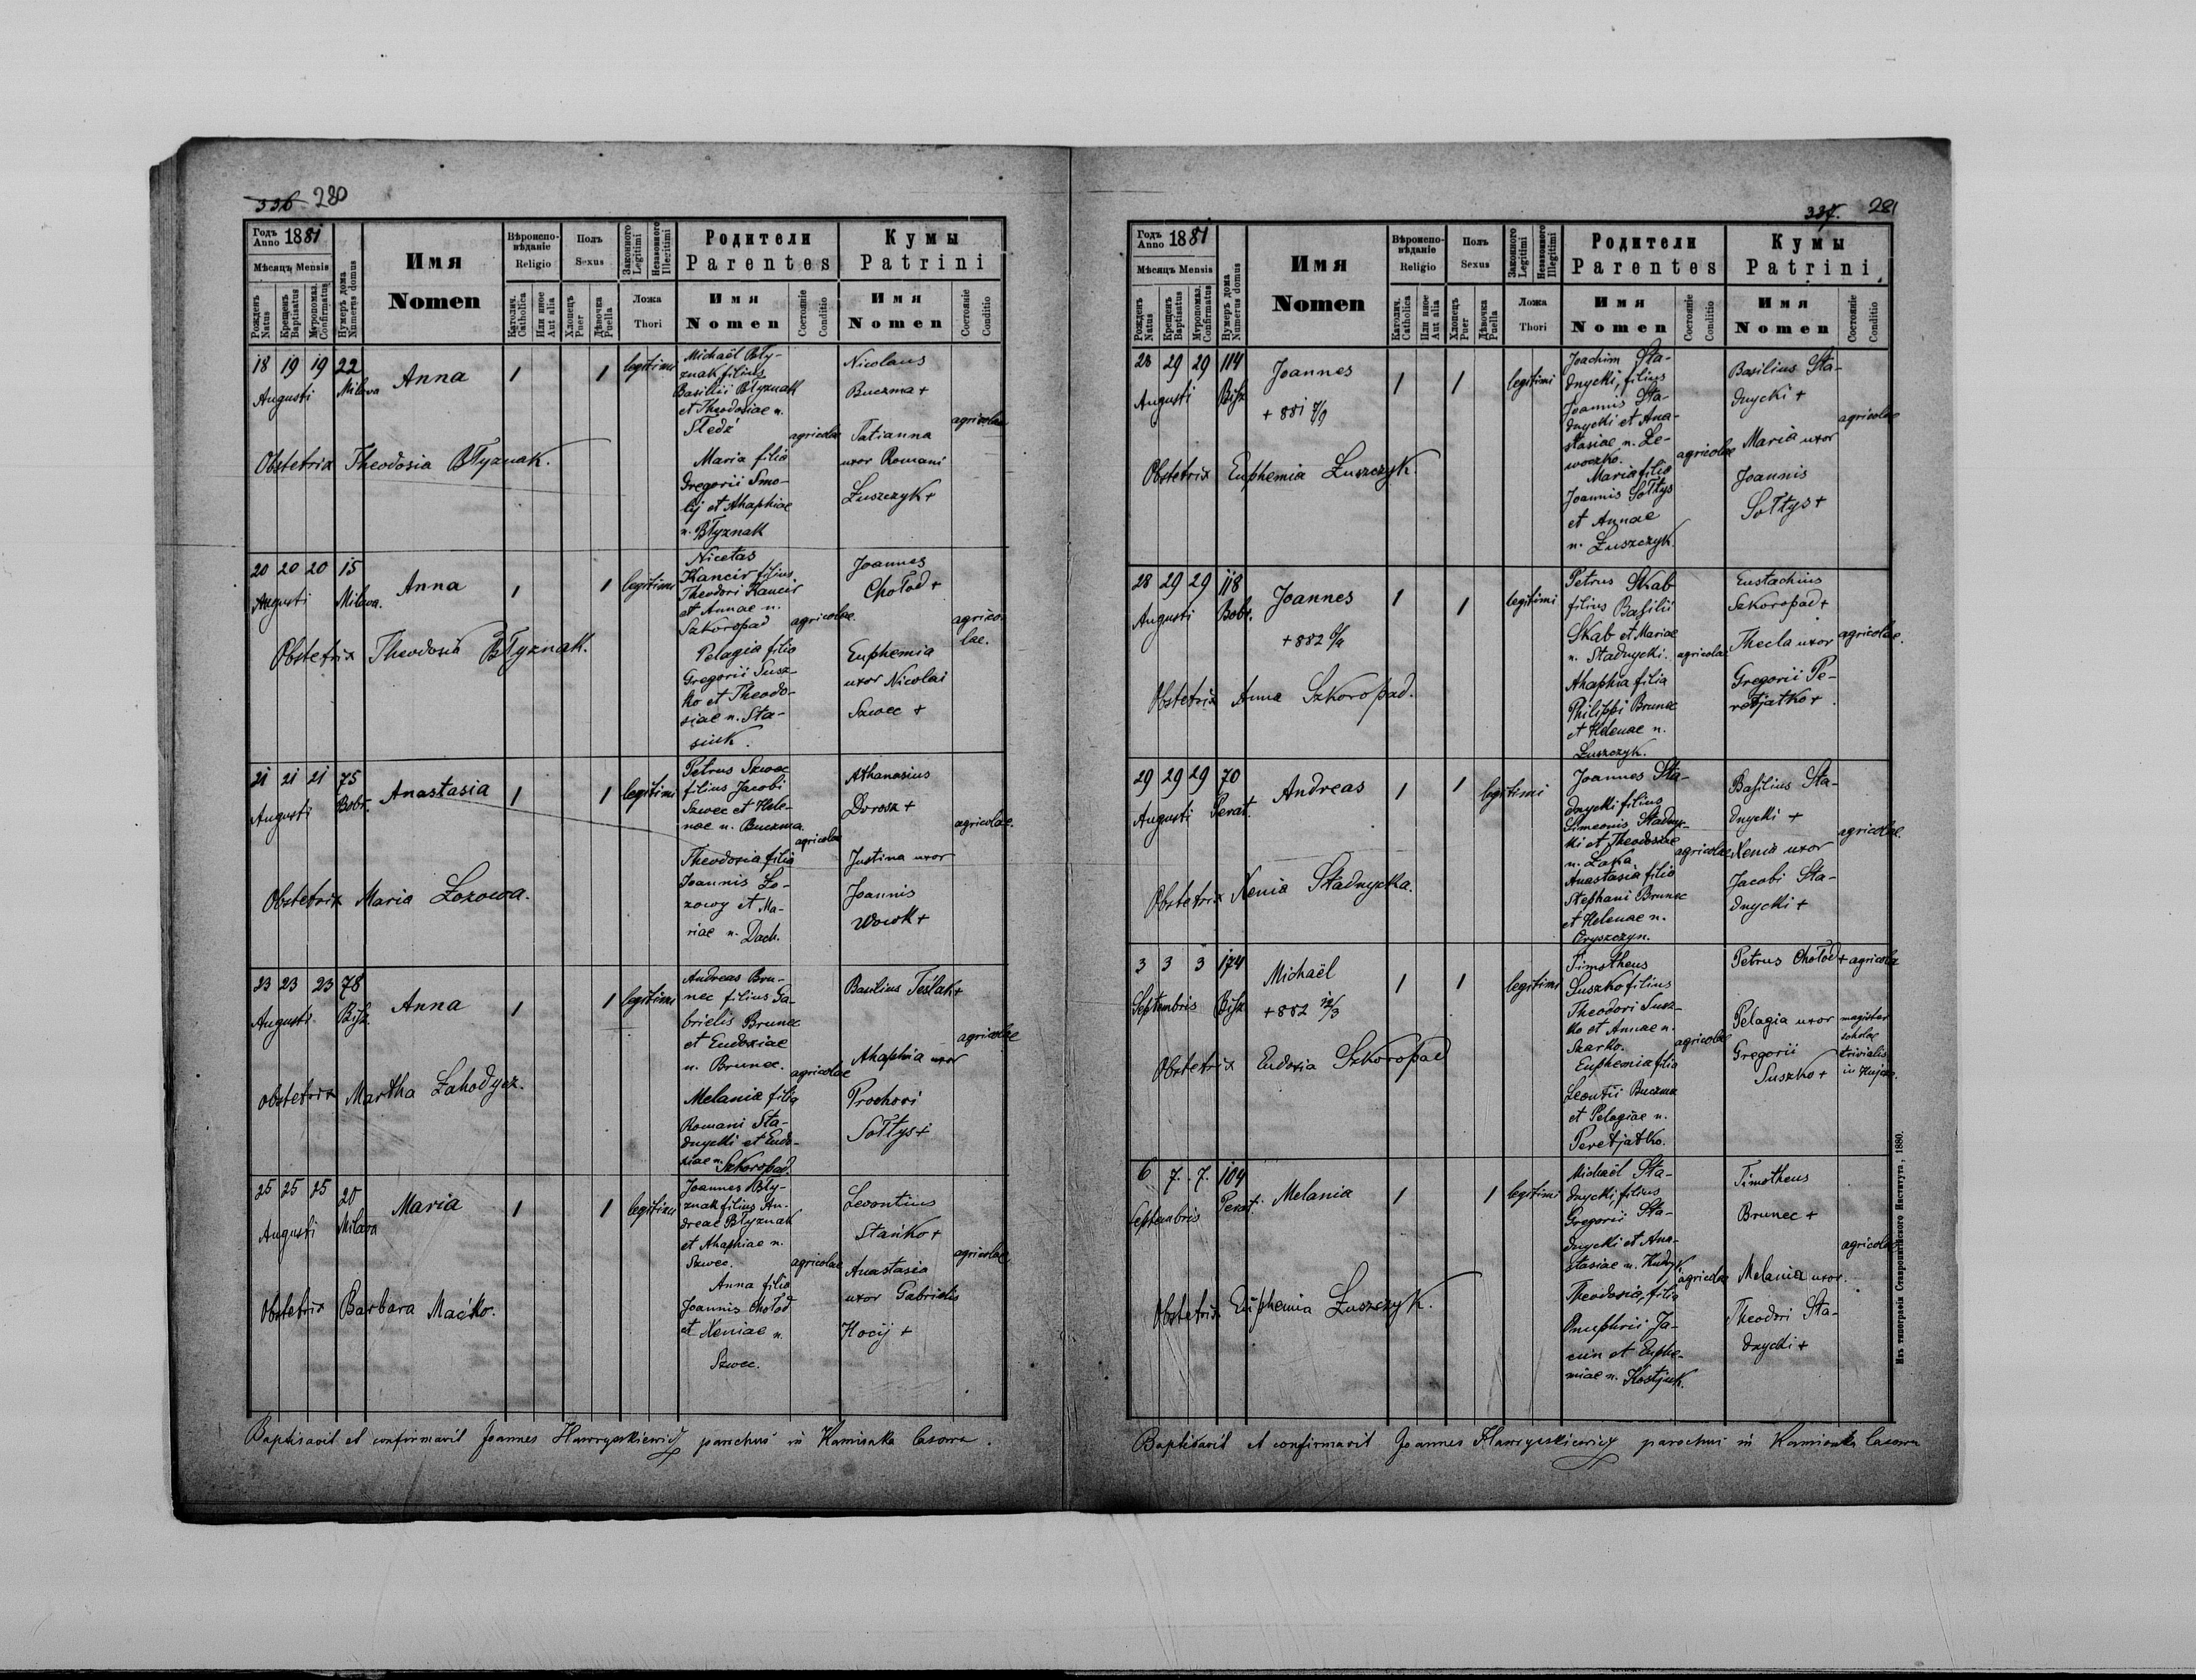 336 280
Годъ Anno 1881
Мѣсяцъ Mensis
Рожденъ Natus
Крещенъ Baptisatus
Муропомаз. Confirmatus
Нумеръ дома Numerus domus
Имя
Nomen
Вѣроиспо-
вѣданіе
Religio
Католич. Catholica
Или иное Aut alia
Полъ
Sexus
Хлопецъ Puer
Дѣвочка Puella
Законного Legitimi
Незаконного Illegitimi
Ложа
Thori
Родители
Parentes
Имя
Nomen
Состояніе Conditio
Кумы
Patrini
Имя
Nomen
Состояніе Conditio
18 19 19 22
Augusti Milava
Anna
1 1 legitimi
Michaël Błyz-
nak filius
Basilii Błyznak
et Theodosiae n.
Śledź
Maria filia
Gregorii Smo-
lij et Ahaphiae
n. Błyznak
agricolae
Nicolaus
Buczma +
Tatianna
uxor Romani
Łuszczyk +
agricolae
Obstetrix Theodosia Błyznak.
20 20 20 15
Augusti Milava.
Anna
1 1 legitimi
Nicetas
Kancir filius
Theodori Kancir
et Annae n.
Szkoropad
Pelagia filia
Gregorii Susz-
ko et Theodo-
siae n. Sta-
siuk.
agricolae.
Joannes
Chołod +
Euphemia
uxor Nicolai
Szwec +
agrico-
lae.
Obstetrix Theodosia Błyznak.
21 21 21 75
Augusti Bobr.
Anastasia
1 1 legitimi
Petrus Szwec
filius Jacobi
Szwec et Hele-
nae n. Buczma.
Theodosia filia
Joannis Ło-
zowy et Ma-
riae n. Dach.
agricolae
Athanasius
Dorosz +
Justina uxor
Joannis
Wowk +
agricolae.
Obstetrix Maria Łozowa.
23 23 23 78
Augusti. Bisz.
Anna
1 1 legitimi
Andreas Bru-
nec filius Ga-
brielis Brunec
et Eudoxiae
n. Brunec.
Melania filia
Romani Sta-
dnycki et Eudo-
xiae n. Szkoropad.
agricolae
Basilius Teślak +
Ahaphia uxor
Prochori
Sołtys +
agricolae
obstetrix Martha Zahodycz.
25 25 25 20
Augusti Milava
Maria
1 1 legitimi
Joannes Błyz-
nak filius An-
dreae Błyznak
et Ahaphiae n.
Szwec.
Anna filia
Joannis Chołod
et Xeniae n.
Szwec.
agricolae
Leontius
Stańko +
Anastasia
uxor Gabrielis
Hocij +
agricolae
Obstetrix Barbara Maćko.
Baptisavit et confirmavit Joannes Hawryszkiewicz parochus in Kamionka lasowa.
337. 281
Годъ Anno 1881
Мѣсяцъ Mensis
Рожденъ Natus
Крещенъ Baptisatus
Муропомаз. Confirmatus
Нумеръ дома Numerus domus
Имя
Nomen
Вѣроиспо-
вѣданіе
Religio
Католич. Catholica
Или иное Aut alia
Полъ
Sexus
Хлопецъ Puer
Дѣвочка Puella
Законного Legitimi
Незаконного Illegitimi
Ложа
Thori
Родители
Parentes
Имя
Nomen
Состояніе Conditio
Кумы
Patrini
Имя
Nomen
Состояніе Conditio
28 29 29 114
Augusti Bisz
Joannes
+ 881
1 1 legitimi
Joachim Sta-
dnycki, filius
Joannis Sta-
dnycki et Ana-
stasiae n. Le-
woczko.
Maria filia
Joannis Sołtys
et Annae
n. Łuszczyk.
agricolae
Basilius Sta-
dnycki +
Maria uxor
Joannis
Sołtys +
agricolae
Obstetrix Euphemia Łuszczyk.
28 29 29 118
Augusti Bobr.
Joannes
+ 882
1 1 legitimi
Petrus Skab
filius Basilii
Skab et Mariae
n. Stadnycki.
Ahaphia filia
Philippi Brunec
et Helenae n.
Łuszczyk.
agricolae
Eustachius
Szkoropad +
Thecla uxor
Gregorii Pe-
retjatko +
agricolae.
Obstetrix Anna Szkoropad.
29 29 29 70
Augusti Perat.
Andreas
1 1 legitimi
Joannes Sta-
dnycki filius
Simeonis Stadnyc-
ki et Theodosiae
n. Łaka
Anastasia filia
Stephani Brunec
et Helenae n.
Oryszczyn.
agricolae
Basilius Sta-
dnycki +
Xenia uxor
Jacobi Sta-
dnycki +
agricolae.
Obstetrix Xenia Stadnycka.
3 3 3 174
Septembris Bisz
Michaël
+ 882 12/3
1 1 legitimi
Timotheus
Suszko filius
Theodori Susz-
ko et Annae n.
Szarko.
Euphemia filia
Leontii Buczma
et Pelagiae n.
Peretjatko.
agricolae
Petrus Chołod + agricola
Pelagia uxor
Gregorii
Suszko +
magister
scholae
trivialis
in Hujcze.
Obstetrix Eudoxia Szkoropad
6 7. 7. 104
Septembris Perat.
Melania
1 1 legitimi
Michaël Sta-
dnycki, filius
Gregorii Sta-
dnycki et Ana-
stasiae n. Kudyk.
Theodosia, filia
Onuphrii Ja-
cin et Euphe-
miae n. Kostjuk.
agricolae
Timotheus
Brunec +
Melania uxor
Theodori Sta-
dnycki +
agricolae
Obstetrix Euphemia Łuszczyk.
Baptisavit et confirmavit Joannes Hawryszkiewicz parochus in Kamionka lasowa
Изъ типографіи Ставропигійского Института, 1880.